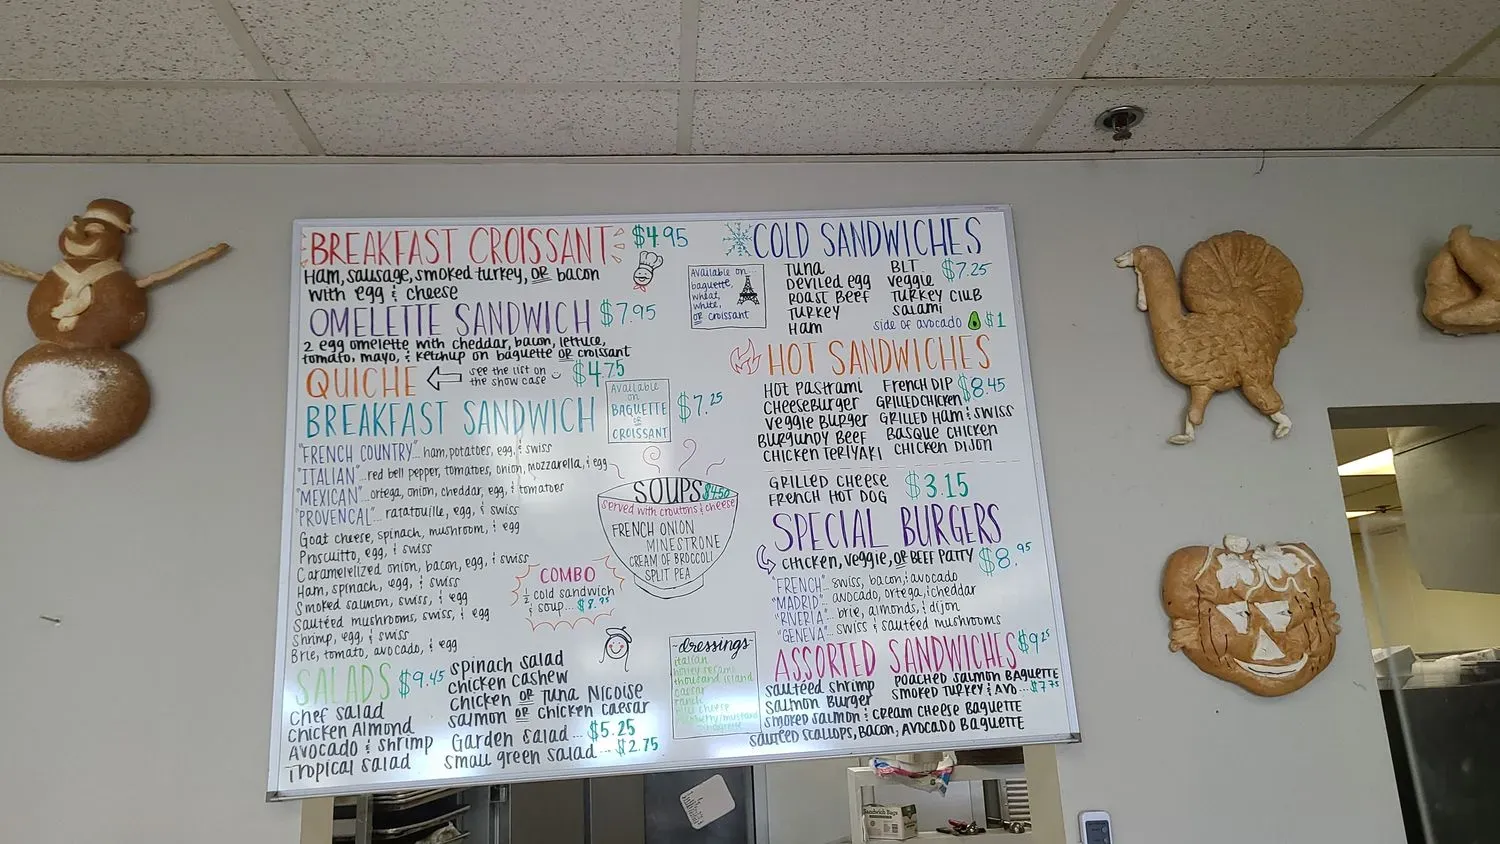 BREAKFAST CROISSANT $4.95
Ham, sausage, smoked turkey, OR bacon
with egg & cheese
OMELETTE SANDWICH $7.95
2 egg omelette with cheddar, bacon, lettuce,
tomato, mayo, & ketchup on baguette OR croissant
QUICHE
see the list on
the show case
$4.75
BREAKFAST SANDWICH
Available
on
BAGUETTE
or
CROISSANT
$7.25
"FRENCH COUNTRY"... ham, potatoes, egg, & swiss
"ITALIAN"... red bell pepper, tomatoes, onion, mozzarella, & egg
"MEXICAN"... ortega, onion, cheddar, egg, & tomatoes
"PROVENCAL"... ratatouille, egg, & swiss
Goat cheese, spinach, mushroom, & egg
Proscuitto, egg, & swiss
Caramelelized onion, bacon, egg, & swiss
Ham, spinach, egg, & swiss
Smoked salmon, swiss, & egg
Sautéed mushrooms, swiss, & egg
Shrimp, egg, & swiss
Brie, tomato, avocado, & egg
SOUPS $4.50
served with croutons & cheese
FRENCH ONION
MINESTRONE
CREAM OF BROCCOLI
SPLIT PEA
COMBO
1/2 cold sandwich
& soup... $8.75
SALADS $9.45
Chef Salad
Chicken Almond
Avocado & Shrimp
Tropical Salad
Spinach Salad
Chicken Cashew
Chicken OR Tuna Nicoise
Salmon OR Chicken Caesar
Garden Salad... $5.25
Small green Salad... $2.75
dressings
italian
honey sesame
thousand island
caesar
ranch
COLD SANDWICHES
Available on
baguette,
wheat,
white,
OR croissant
Tuna
Deviled egg
Roast Beef
Turkey
Ham
BLT
Veggie
Turkey Club
Salami
$7.25
side of avocado $1
HOT SANDWICHES
Hot Pastrami
Cheeseburger
Veggie Burger
Burgundy Beef
Chicken Teriyaki
French Dip
Grilled Chicken
Grilled Ham & Swiss
Basque Chicken
Chicken Dijon
$8.45
GRILLED CHEESE
FRENCH HOT DOG
$3.15
SPECIAL BURGERS
CHICKEN, VEGGIE, OR BEEF PATTY $8.95
"FRENCH"... swiss, bacon, & avocado
"MADRID"... avocado, ortega, & cheddar
"RIVERIA"... brie, almonds, & dijon
"GENEVA"... swiss & sautéed mushrooms
ASSORTED SANDWICHES $9.25
Sautéed Shrimp
Salmon Burger
Poached Salmon Baguette
Smoked Turkey & Avo... $7.75
Smoked Salmon & Cream Cheese Baguette
Sautéed Scallops, Bacon, Avocado Baguette
Sandwich Bags